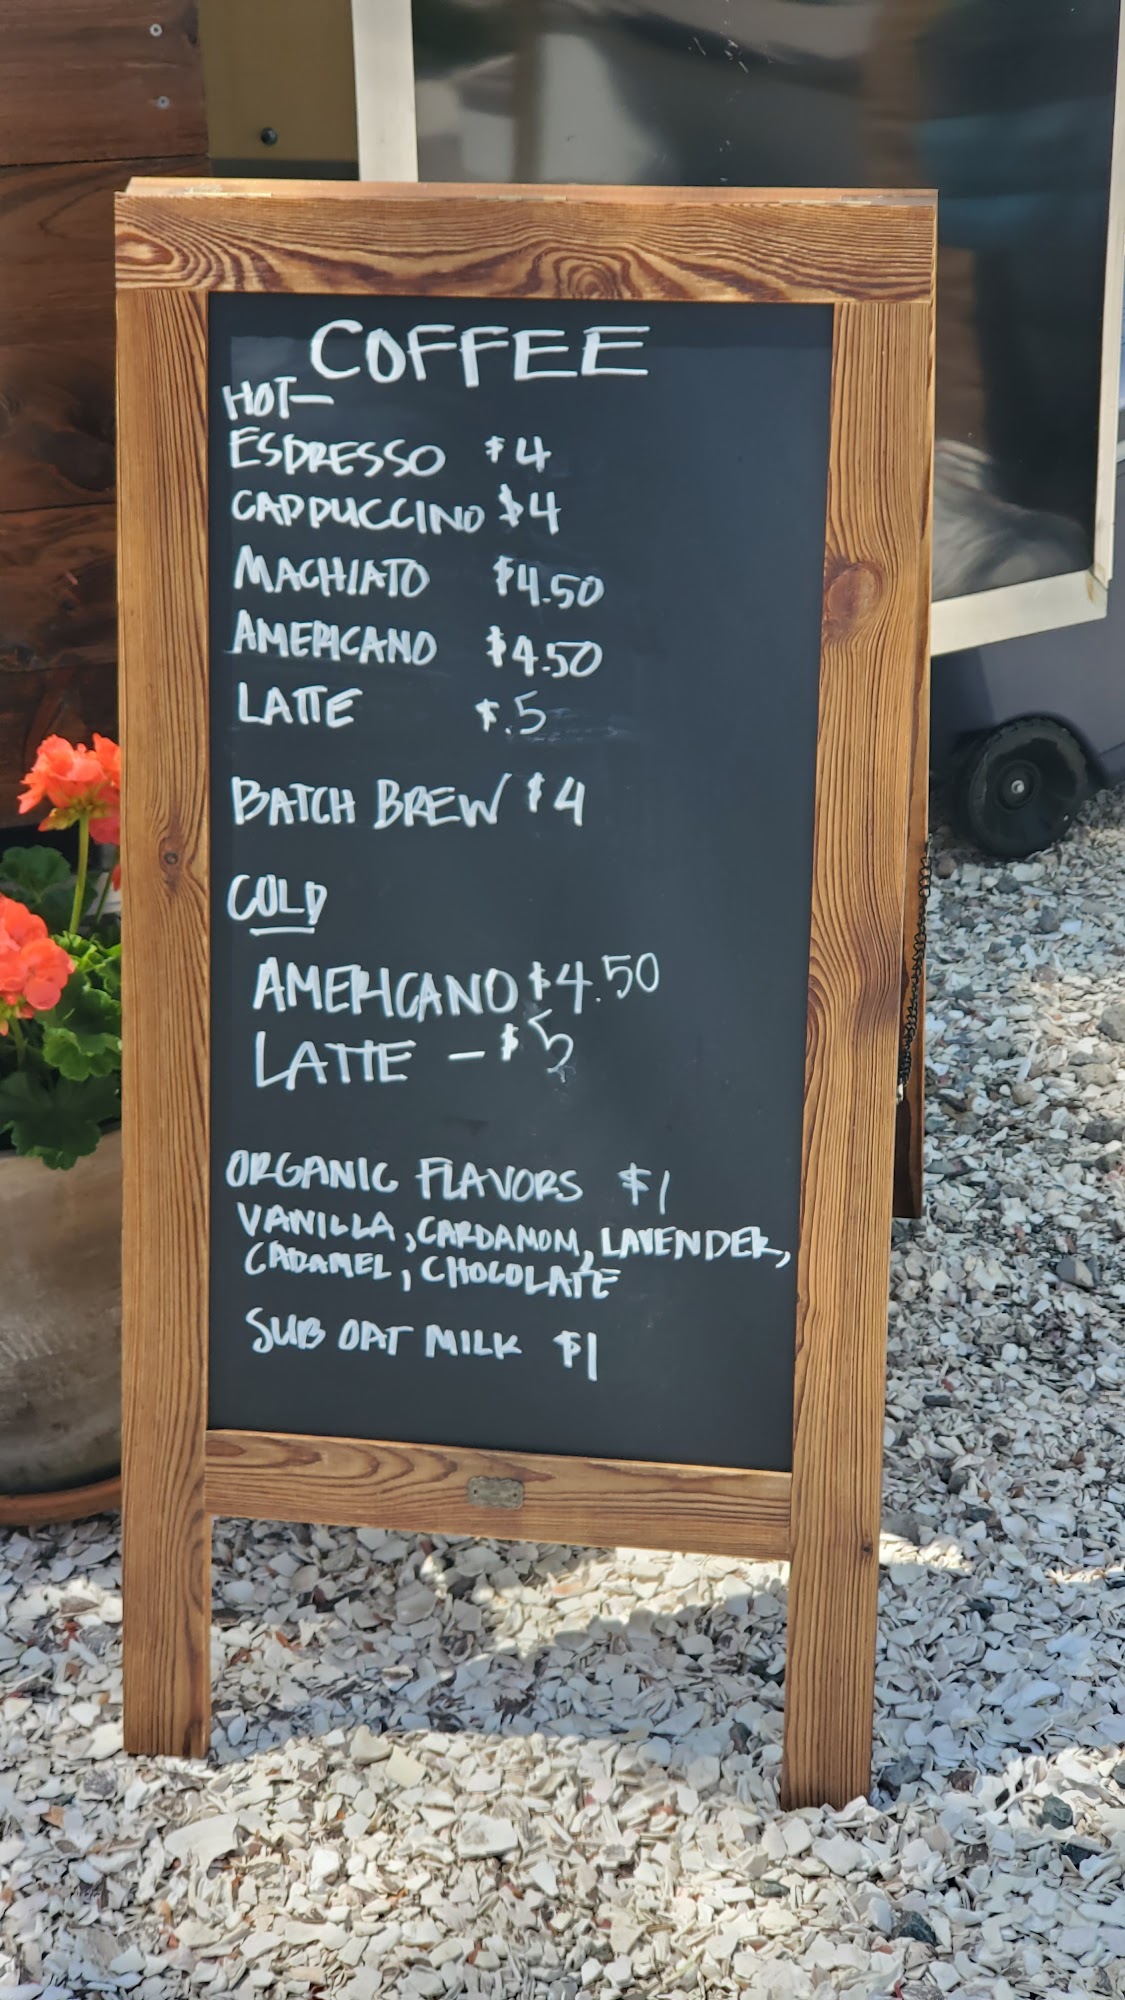 COFFEE
HOT—
ESPRESSO $4
CAPPUCCINO $4
MACHIATO $4.50
AMERICANO $4.50
LATTE $.5
BATCH BREW $4
COLD
AMERICANO $4.50
LATTE - $5
ORGANIC FLAVORS $1
VANILLA, CARDAMOM, LAVENDER,
CARAMEL, CHOCOLATE
SUB OAT MILK $1